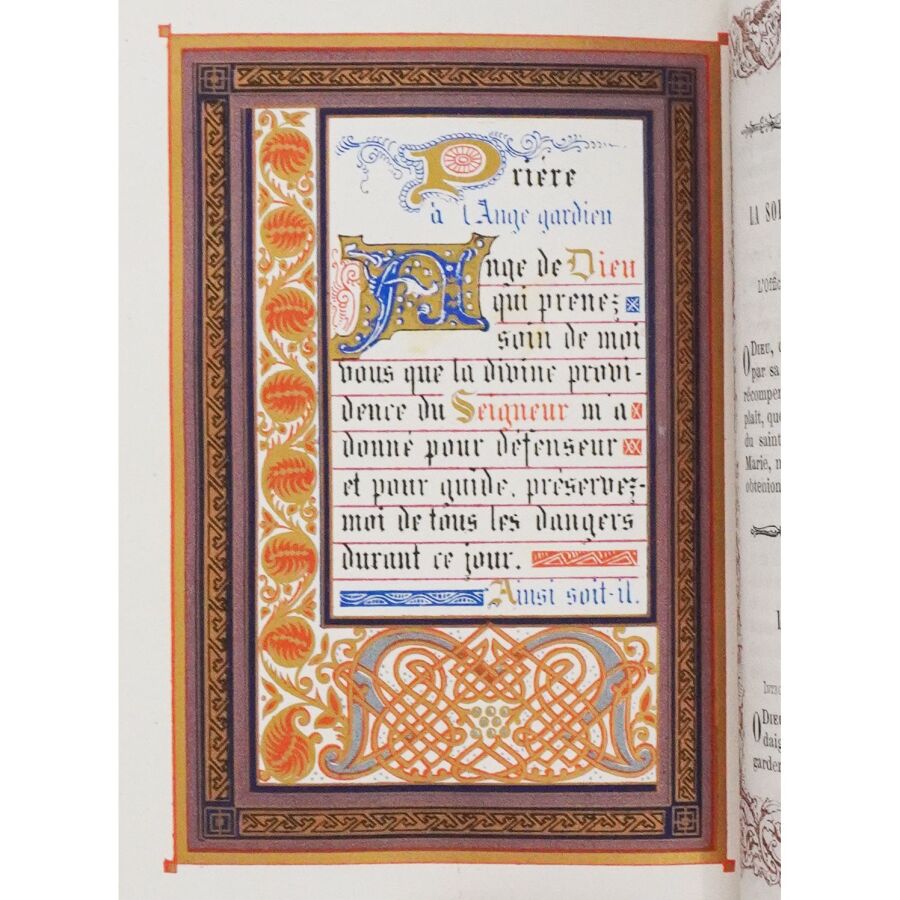 Prière
à l'Ange gardien
Ange de Dieu
qui prenez
soin de moi
vous que la divine provi-
dence du Seigneur m'a
donné pour défenseur
et pour guide, préservez-
moi de tous les dangers
durant ce jour.
Ainsi soit-il.
LA SOI
L'Offic
O DIEU,
par sa
récompen
plait, que
du saint
Marie, n
obtenion
O DIEU
daig
garder